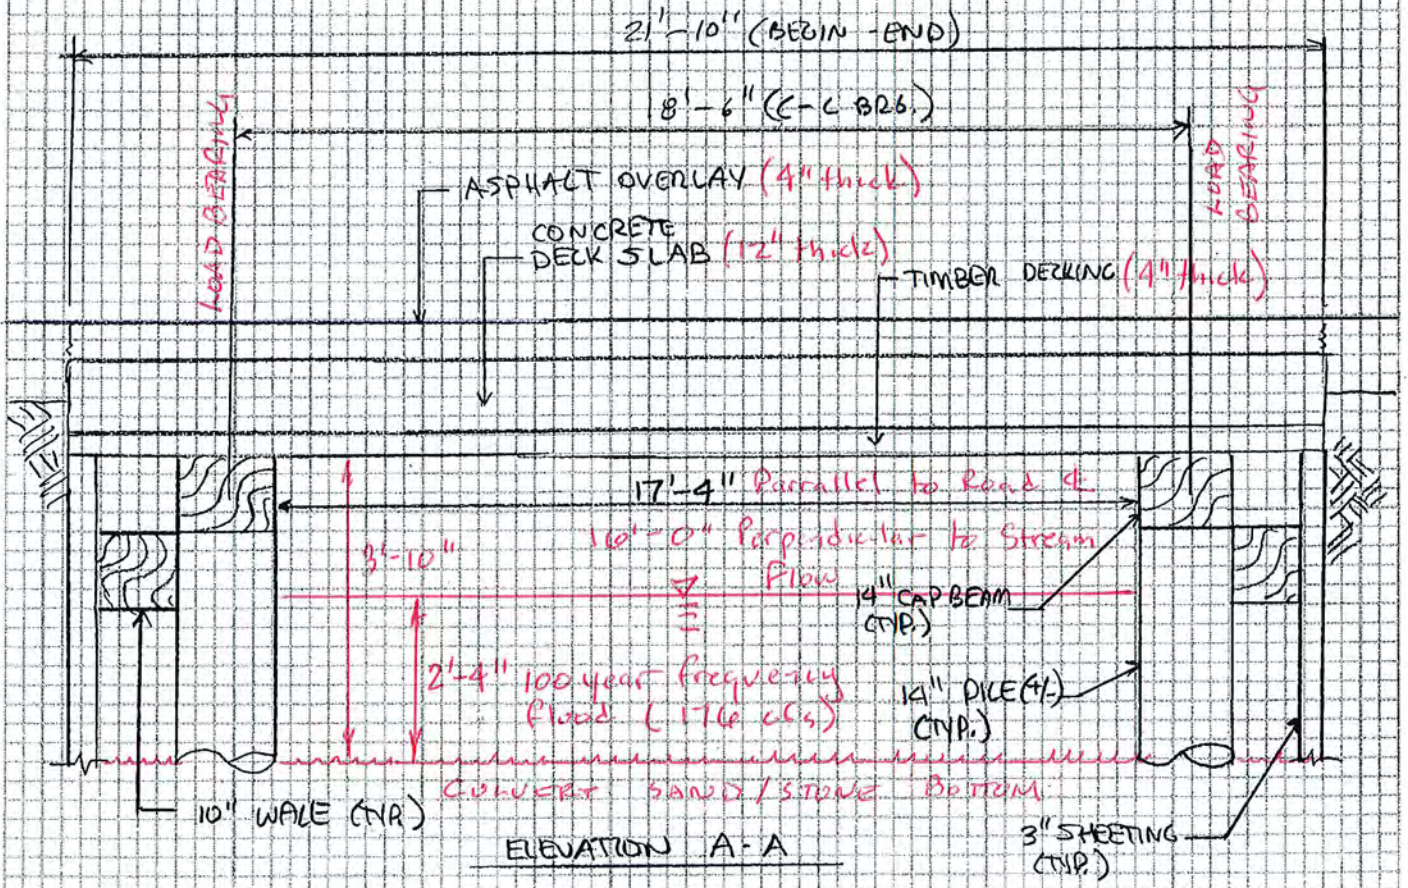 21'-10" (BEGIN-END)
18'-6" (C-C BRG.)
LOAD BEARING
LOAD
BEARING
ASPHALT OVERLAY (4" thick)
CONCRETE
DECK SLAB (12" thick)
TIMBER DECKING (4" thick)
17'-4" Parrallel to Road &
16'-0" Perpendicular to Stream
Flow
3'-10"
14" CAP BEAM
(TYP.)
2'-4" 100 year frequency
flood (176 cfs)
14" PILE (+/-)
(TYP.)
CULVERT SAND/STONE BOTTOM
10" WALE (TYP.)
3" SHEETING
(TYP.)
ELEVATION A-A